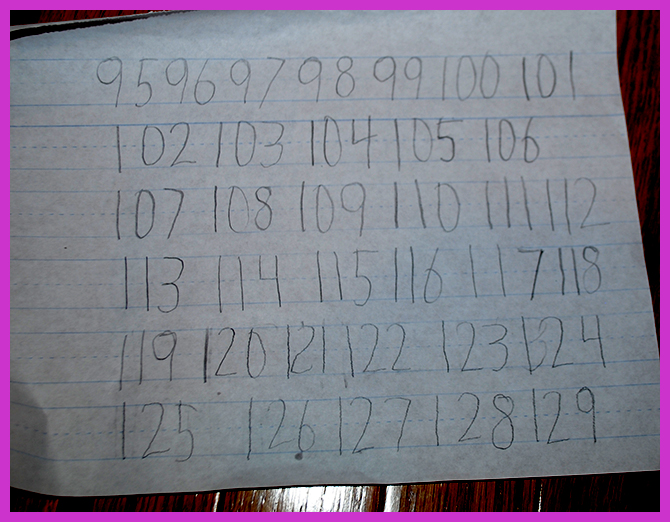 95 96 97 98 99 100 101
102 103 104 105 106
107 108 109 110 111 112
113 114 115 116 117 118
119 120 121 122 123 124
125 126 127 128 129